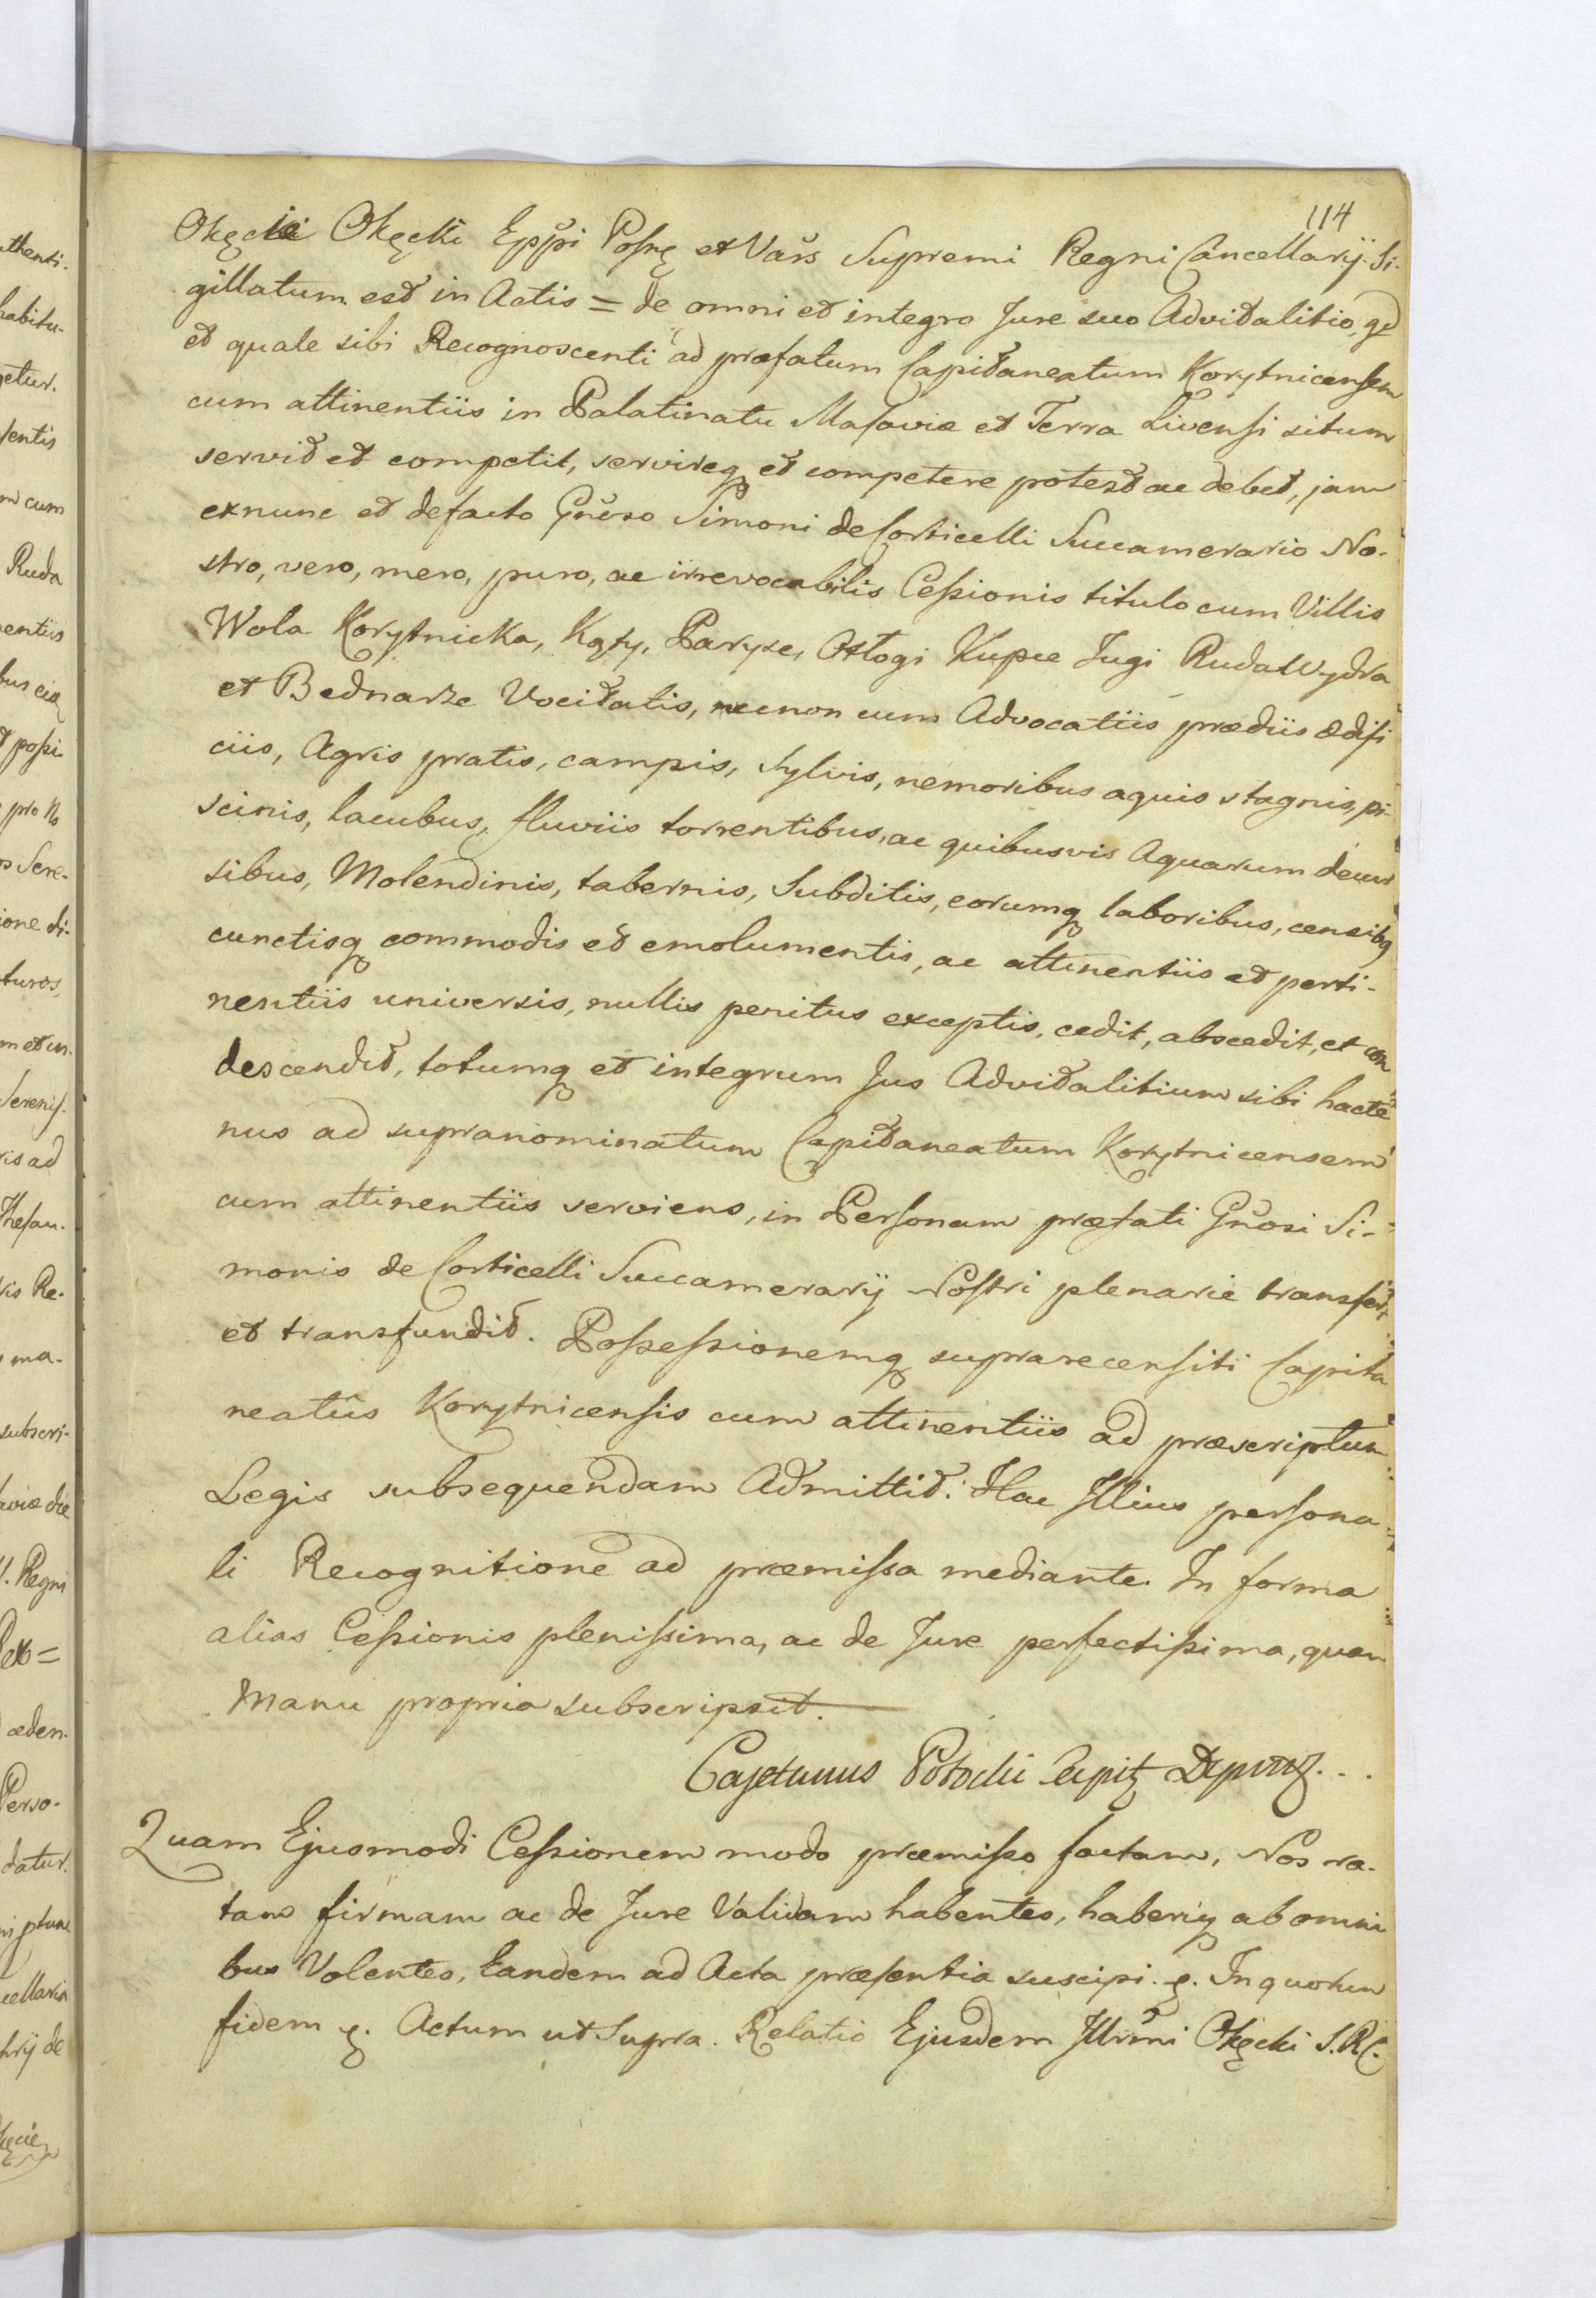 114
Okęcie Okęcki Eppi Posnę et Vars Supremi Regni Cancellarij Si-
gillatum est in Actis = de omni et integro Jure suo Advitalitio, qd
et quale sibi Recognoscenti ad præfatum Capitaneatum Korytnicensem
cum attinentiis in Palatinatu Masoviæ et Terra Livensi situm
servit et competit, servireq et competere potest ac debet, jam
exnunc et defacto Gnõso Simoni de Corticelli Succamerario No-
stro, vero, mero, puro, ac irrevocabilis Cessionis titulo cum Villis
Wola Korytnicka, Kąty, Paryse, Ozłogi Kupce Jugi Ruda Wydra
et Bednarze Vocitatis, necnon cum Advocatiis prædiis ædifi
ciis, Agris pratis, campis, Sylvis, nemoribus aquis stagnis, pi-
scinis, lacubus, fluviis torrentibus, ac quibusvis Aquarum decur
sibus, Molendinis, tabernis, Subditis, eorumq laboribus, censibq
cunctisq commodis et emolumentis, ac attinentiis et perti-
nentiis universis, nullis penitus exceptis, cedit, abscedit, et con
descendit, totumq et integrum Jus Advitalitium sibi hacte
nus ad supranominatum Capitaneatum Korytnicensem
cum attinentiis serviens, in Personam præfati Gnõsi Si-
monis de Corticelli Succamerarij Nostri plenarie transfert
et transfundit. Possessionemq suprarecensiti Capita
neatûs Korytnicensis cum attinentiis ad præscriptum
Legis subsequendam Admittit. Hac Illius persona-
li Recognitione ad præmissa mediante. In forma
alias Cessionis plenissima, ac de Jure perfectissima, quam
Manu propria subscripsit.
Cajetanus Potocki Capit
Quam Ejusmodi Cessionem modo præmisso factam, Nos ra-
tam firmam ac de Jure Validam habentes, haberiq ab omni
bus Volentes, Eandem ad Acta præsentia suscipi. &. In quorum
fidem &. Actum ut Supra. Relatio Ejusdem Illrmi Okęcki S.R.C.